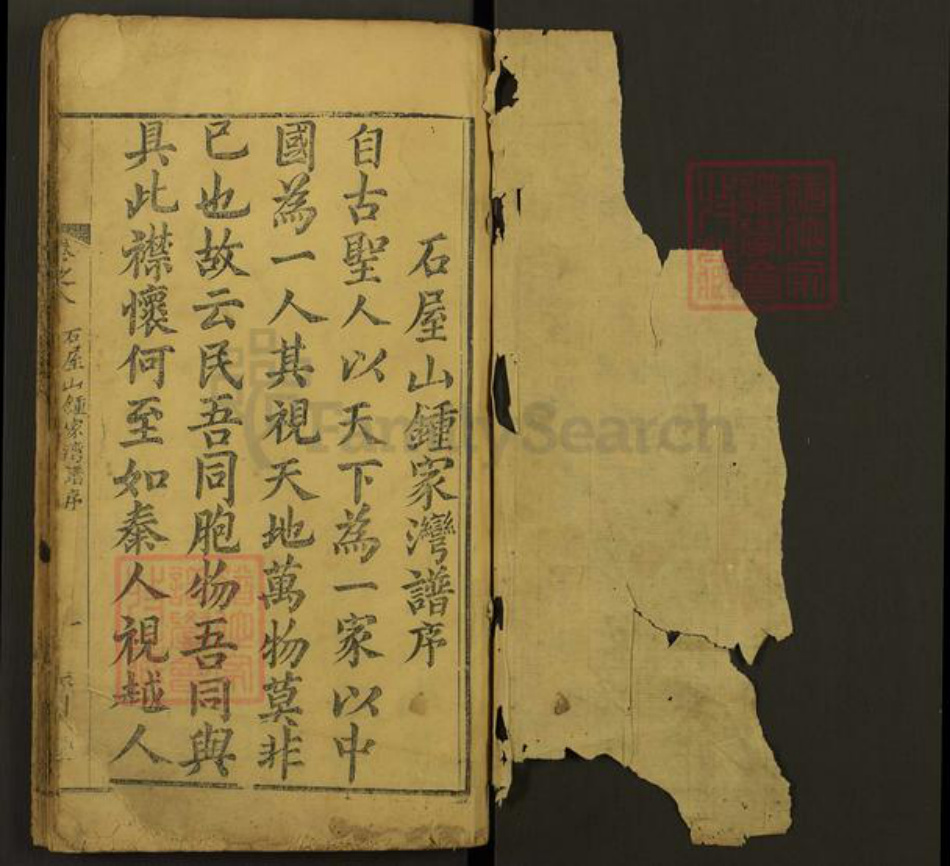 石屋山鍾家灣譜序
自古聖人以天下為一家以中
國為一人其視天地萬物莫非
已也故云民吾同胞物吾同與
具此襟懷何至如秦人視越人
卷之
石屋山鍾家灣譜序
一
FamilySearch